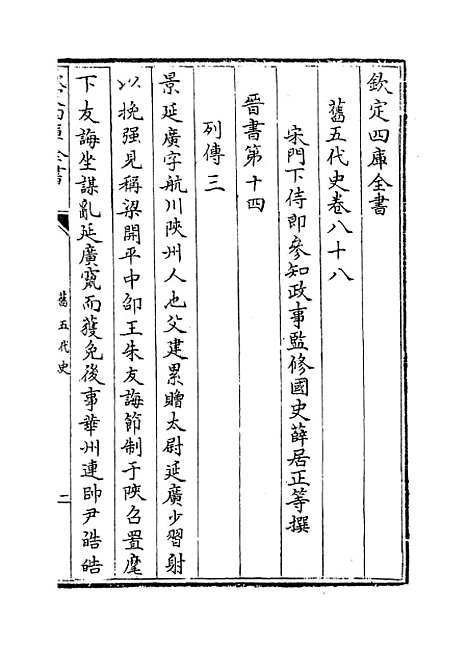 欽定四庫全書
舊五代史卷八十八
宋門下侍郎參知政事監修國史薛居正等撰
晉書第十四
列傳三
景延廣字航川陜州人也父建累贈太尉延廣少習射
以挽强見稱梁開平中邵王朱友誨節制于陜召置麾
下友誨坐謀亂延廣竄而獲免後事華州連帥尹皓皓
舊五代史